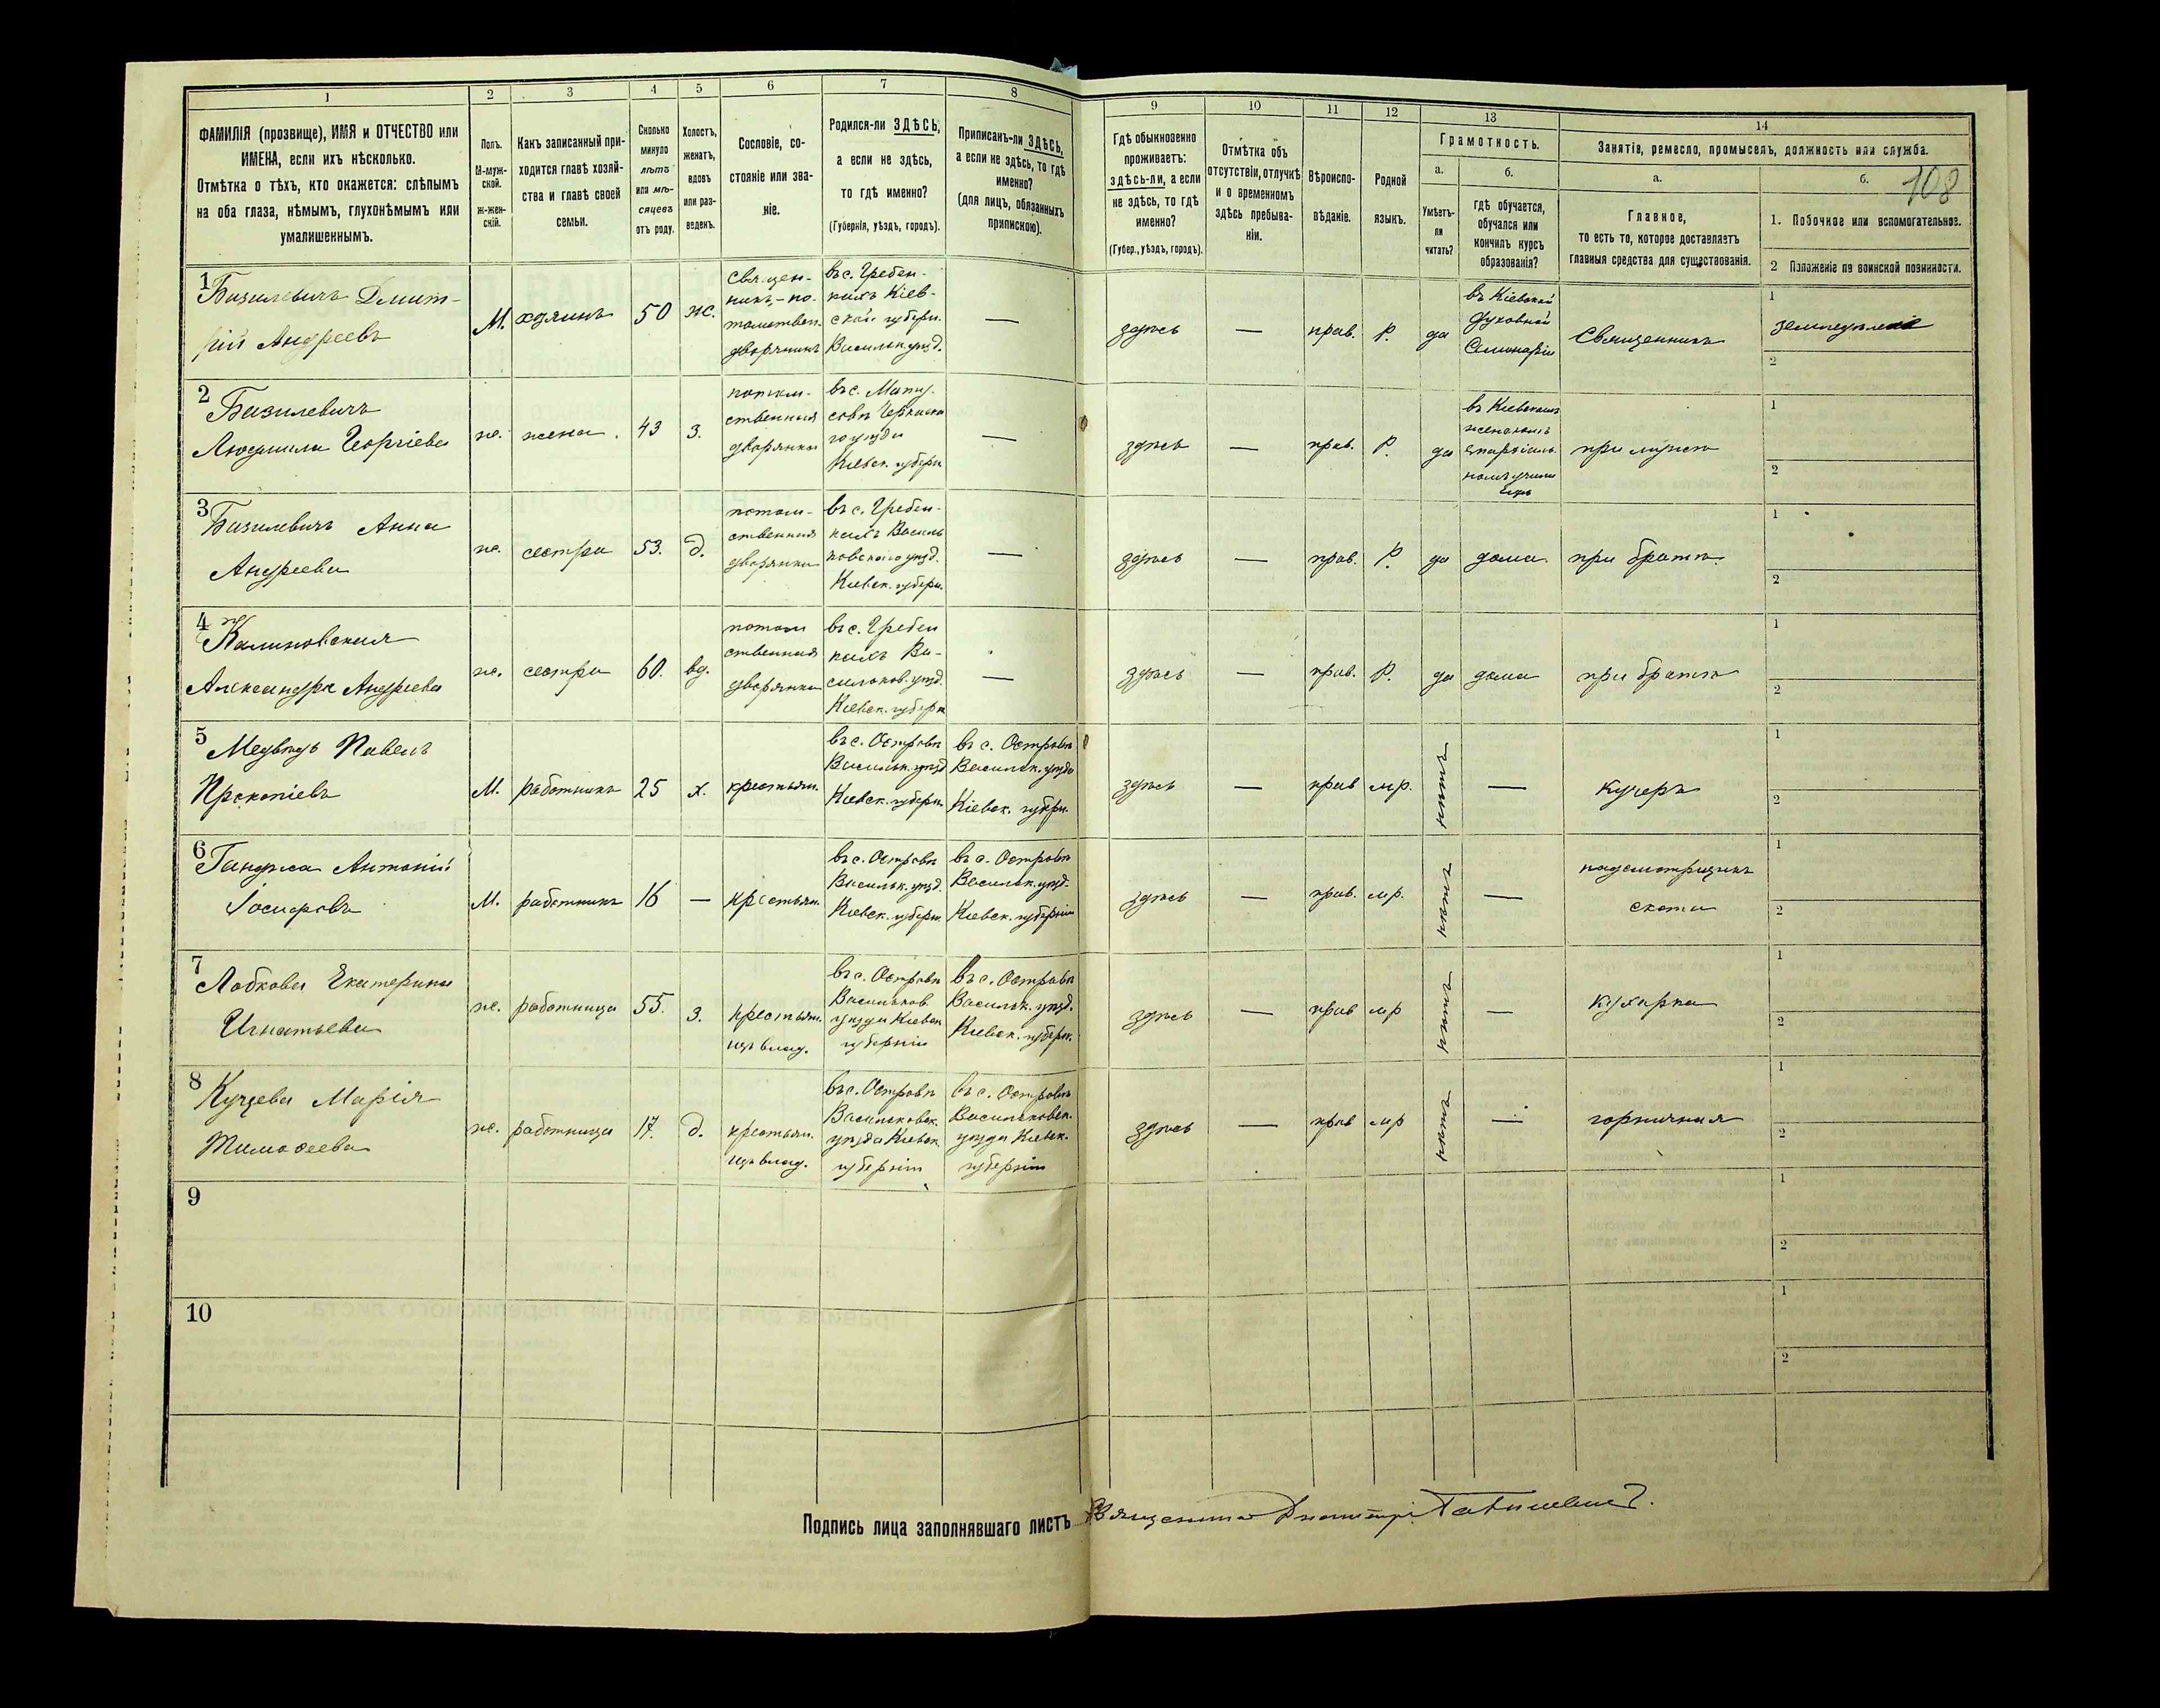 1 2 3 4 5 6 7 8 9 10 11 12 13 14
ФАМИЛІЯ (прозвище), ИМЯ и ОТЧЕСТВО или
ИМЕНА, если ихъ нѣсколько.
Отмѣтка о тѣхъ, кто окажется: слѣпымъ
на оба глаза, нѣмымъ, глухонѣмымъ или
умалишеннымъ.
Полъ.
М-муж-
ской.
ж-жен-
скій.
Какъ записанный при-
ходится главѣ хозяй-
ства и главѣ своей
семьи.
Сколько
минуло
лѣтъ
или мѣ-
сяцевъ
отъ роду.
Холостъ,
женатъ,
вдовъ
или раз-
веденъ.
Сословіе, со-
стояніе или зва-
ніе.
Родился-ли ЗДѢСЬ,
а если не здѣсь,
то гдѣ именно?
(Губернія, уѣздъ, городъ).
Приписанъ-ли ЗДѢСЬ,
а если не здѣсь, то гдѣ
именно?
(для лицъ, обязанныхъ
припискою).
Гдѣ обыкновенно
проживаетъ:
здѣсь-ли, а если
не здѣсь, то гдѣ
именно?
(Губер., уѣздъ, городъ).
Отмѣтка объ
отсутствіи, отлучкѣ
и о временномъ
здѣсь пребыва-
ніи.
Вѣроиспо-
вѣданіе.
Родной
языкъ.
Грамотность.
а.
Умѣетъ-
ли
читать?
б.
гдѣ обучается,
обучался или
кончилъ курсъ
образованія?
Занятіе, ремесло, промыселъ, должность или служба.
а.
Главное,
то есть то, которое доставляетъ
главныя средства для существованія.
б.
108
1. Побочное или вспомогательное.
2 Положеніе по воинской повинности.
1
Базилевичъ Дмит-
рій Андреевъ
М.
хозяинъ
50
ж.
Священ-
никъ, по-
томствен.
дворянинъ
въ с. Гребен-
кахъ Кіев-
ской губерн.
Васильк. уѣзд.
—
здѣсь
—
прав.
Р.
да
въ Кіевской
Духовной
Семинаріи
Священникъ
1
земледѣліе
2
2
Базилевичъ
Людмила Георгіева
ж.
жена.
43
з.
потом-
ственная
дворянка
въ с. Мату-
совѣ Черкаска
го уѣзда
Кіевск. губерн
—
здѣсь
—
прав.
Р.
да
въ Кіевскомъ
женскомъ
епархіаль
номъ учили
щѣ
при мужѣ
1
2
3
Базилевичъ Анна
Андреева
ж.
сестра
53.
д.
потом-
ственная
дворянка
въ с. Гребен-
кахъ Василь
ковскаго уѣзд.
Кіевск. губерн.
—
здѣсь
—
прав.
Р.
да
дома.
при братѣ.
1
2
4
Калиновская
Александра Андреева
ж.
сестра
60.
вд.
потом
ственная
дворянка
въ с. Гребен
кахъ Ва-
сильков. уѣзд.
Кіевск. губерн
—
здѣсь
—
прав.
Р.
да
дома
при братѣ
1
2
5
Медвѣдь Павелъ
Прокопіевъ
М.
работникъ
25
х.
крестьян.
въ с. Островѣ
Васильк. уѣзд
Кіевск. губерн.
въ с. Островѣ
Васильк. уѣзда
Кіевск. губерн.
здѣсь
—
прав
мр.
нѣтъ
—
кучеръ
1
2
6
Ганджа Антоній
М.
работникъ
16
—
крестьян.
въ с. Островѣ
Васильк. уѣзд.
Кіевск. губерн.
въ с. Островѣ
Васильк. уѣзд.
Кіевск. губерніи
здѣсь
—
прав.
мр.
нѣтъ
—
надсмотрщикъ
скота
1
2
7
Лобкова Екатерина
Игнатьева
ж.
работница
55.
з.
крестьян.
изъ влад.
въ с. Островѣ
Васильков
уѣзда Кіевск
губерніи
въ с. Островѣ
Васильк. уѣзд.
Кіевск. губерн.
здѣсь
—
прав
мр
нѣтъ
—
кухарка
1
2
8
Марія
Тимоѳеева
ж.
работница
17.
д.
крестьян.
изъ влад.
въ с. Островѣ
Васильковск.
уѣзда Кіевск.
губерніи
въ с. Островѣ
Васильковск.
уѣзда Кіевск.
губерніи
здѣсь
—
прав
мр
нѣтъ
—
горничная
1
2
9
1
2
10
1
2
Подпись лица заполнявшаго листъ Священникъ Дмитрій Базилевичъ.